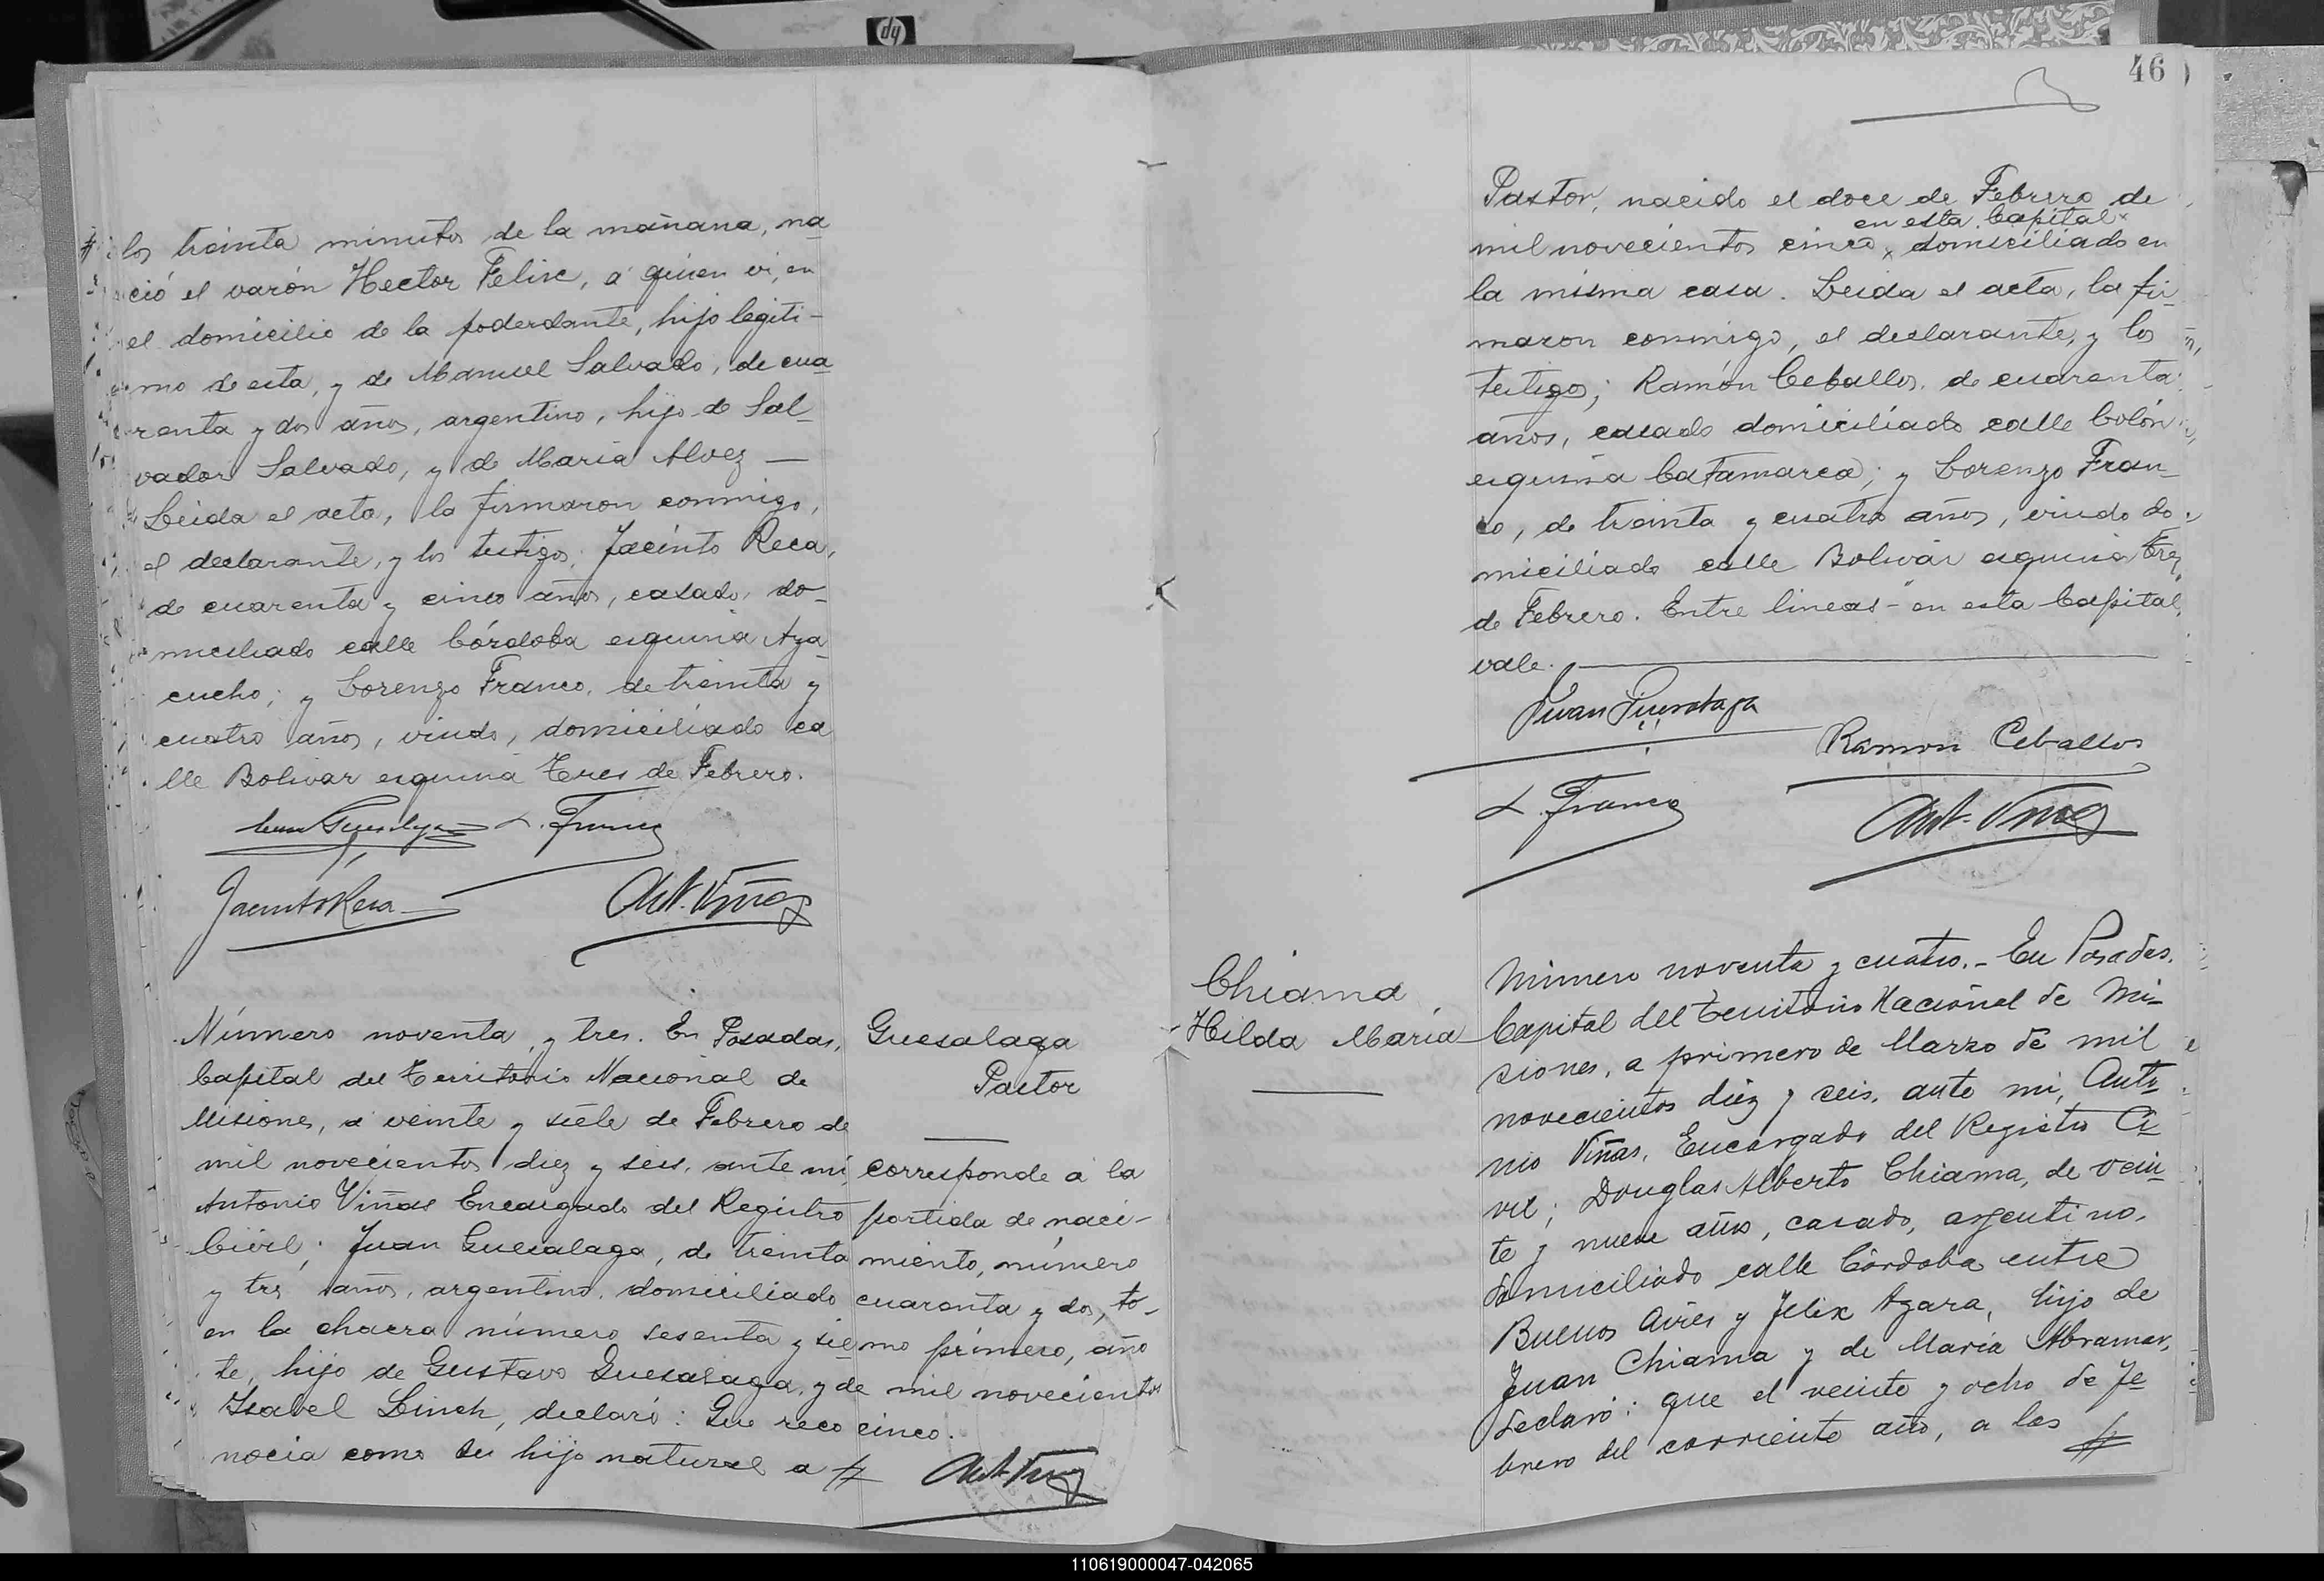 # los treinta minutos de la mañana, na
ció el varón Hector Felix, á quien vi, en
el domicilio de la poderdante, hijo legiti-
mo de esta, y de Manuel Salvado, de cua
renta y dos años, argentino, hijo de Sal_
vador Salvado, y de Maria Alvez —
Leida el acta, la firmaron conmigo,
el declarante, y los testigos; Jacinto Reca,
de cuarenta y cinco años, casado, do-
miciliado calle Córdoba esquina Aya_
cucho; y Lorenzo Franco, de treinta y
cuatro años, viudo, domiciliado ca
lle Bolivar esquina Tres de Febrero.
L. Franco
Jacinto Reca
Ant. Viñas
Número noventa y tres. En Posadas,
Capital del Territorio Nacional de
Misiones, a veinte y siete de Febrero de
mil novecientos diez y seis, ante mi,
Antonio Viñas Encargado del Registro
Civil; Juan Guesalaga, de treinta
y tres años, argentino, domiciliado
en la chacra número sesenta y sie_
te, hijo de Gustavo Guesalaga, y de
Isavel Linch, declaró: Que reco
nocia como su hijo natural a #
Guesalaga
Pastor
corresponde á la
partida de naci-
miento, número
cuarenta y dos, to-
mo primero, año
mil novecientos
cinco.
Ant. Viñas
46
Pastor, nacido el doce de Febrero de
en esta Capital x
mil novecientos cinco x domiciliado en
la misma casa. Leida el acta, la fir_
maron conmigo, el declarante, y los
testigos; Ramón Ceballos, de cuarenta
años, casado domiciliado calle Colón
esquina Catamarca; y Lorenzo Fran_
co, de treinta y cuatro años, viudo do_
miciliado calle Bolivar esquina Tres
de Febrero. Entre lineas - en esta Capital,
vale.
Juan Guesalaga
Ramon Ceballos
L. Franco
Ant. Viñas
Chiama
Hilda María
Número noventa y cuatro.- En Posadas,
Capital del Territorio Nacional de Mi_
siones, a primero de Marzo de mil
novecientos diez y seis, ante mi, Anto_
nio Viñas, Encargado del Registro Ci_
vil; Douglas Alberto Chiama, de vein_
te y nueve años, casado, argentino,
domiciliado calle Córdoba entre
Buenos Aires y Felix Azara, hijo de
Juan Chiama y de María Abramor,
declaró: que el veinte y ocho de Fe_
brero del corriente año, a las #
110619000047-042065